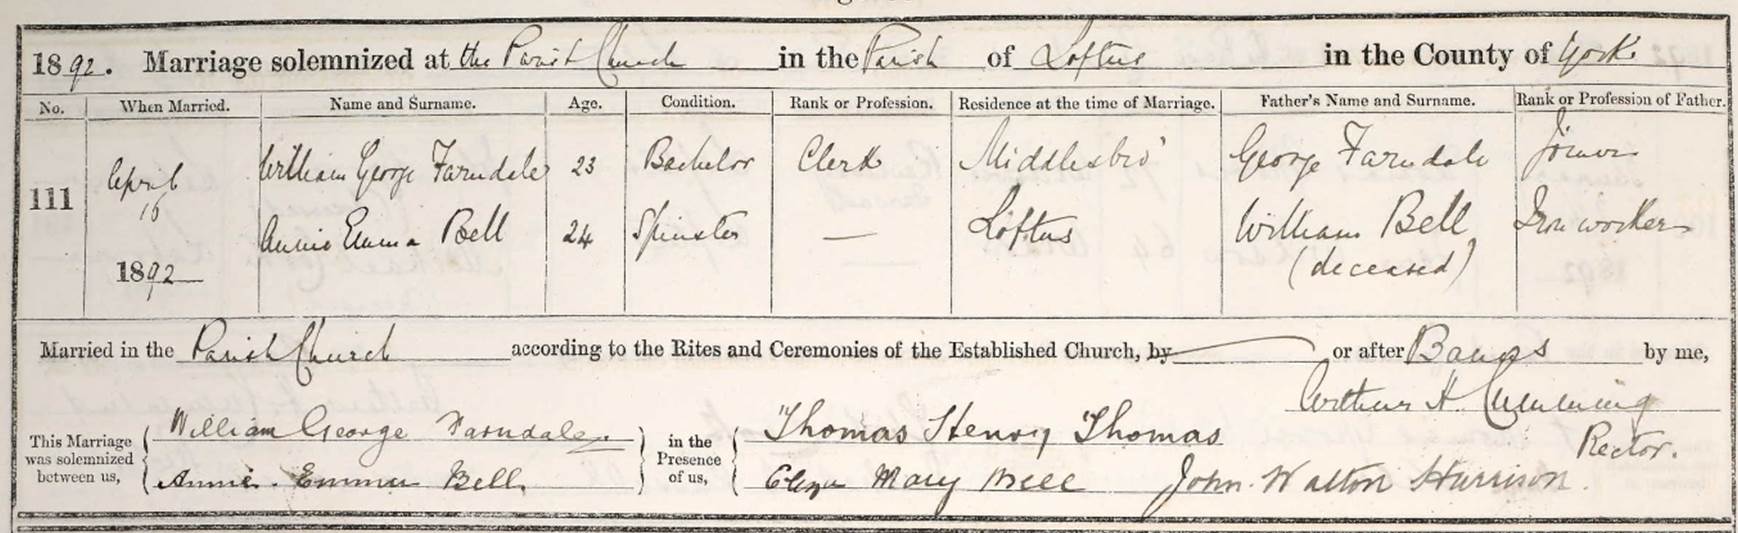 1892. Marriage solemnized at the Parish Church in the Parish of Loftus in the County of York
No. When Married. Name and Surname. Age. Condition. Rank or Profession. Residence at the time of Marriage. Father's Name and Surname. Rank or Profession of Father.
111 April 16 1892 William George Farndale 23 Bachelor Clerk Middlesbro' George Farndale Joiner
Annie Emma Bell 24 Spinster — Loftus William Bell (deceased) Iron worker
Married in the Parish Church according to the Rites and Ceremonies of the Established Church, by — or after Banns by me,
Arthur H. Cumming
Rector.
This Marriage was solemnized between us, William George Farndale. in the Presence of us, Thomas Henry Thomas
Annie Emma Bell, Mary Bell John Walton Harrison.